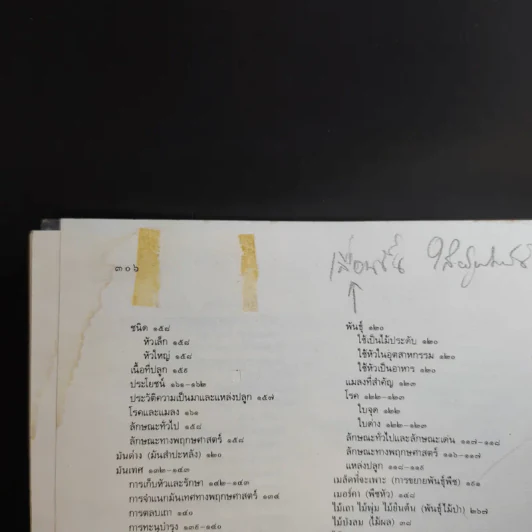 ๓๐๖
เลื่อนขึ้น
ชนิด ๑๕๘
หัวเล็ก ๑๕๘
หัวใหญ่ ๑๕๘
เนื้อที่ปลูก ๑๕๙
ประโยชน์ ๑๖๑-๑๖๒
ประวัติความเป็นมาและแหล่งปลูก ๑๕๗
โรคและแมลง ๑๖๑
ลักษณะทั่วไป ๑๕๘
ลักษณะทางพฤกษศาสตร์ ๑๕๘
มันต่าง (มันสำปะหลัง) ๑๒๐
มันเทศ ๑๓๒-๑๔๓
การเก็บหัวและรักษา ๑๔๒-๑๔๓
การจำแนกมันเทศทางพฤกษศาสตร์ ๑๓๔
การตลบเถา ๑๔๐
การทะนุบำรุง ๑๓๙-๑๔๐
พันธุ์ ๑๒๐
ใช้เป็นไม้ประดับ ๑๒๐
ใช้หัวในอุตสาหกรรม ๑๒๐
ใช้หัวเป็นอาหาร ๑๒๐
แมลงที่สำคัญ ๑๒๓
โรค ๑๒๒-๑๒๓
ใบจุด ๑๒๒
ใบด่าง ๑๒๒-๑๒๓
ลักษณะทั่วไปและลักษณะเด่น ๑๑๗-๑๑๘
ลักษณะทางพฤกษศาสตร์ ๑๑๖-๑๑๗
แหล่งปลูก ๑๑๘-๑๑๙
เมล็ดที่จะเพาะ (การขยายพันธุ์พืช) ๑๙๑
เมอร์คา (พืชหัว) ๑๔๘
ไม้เถา ไม้พุ่ม ไม้ยืนต้น (พันธุ์ไม้ป่า) ๒๖๗
(ไม้ผล) ๓๘